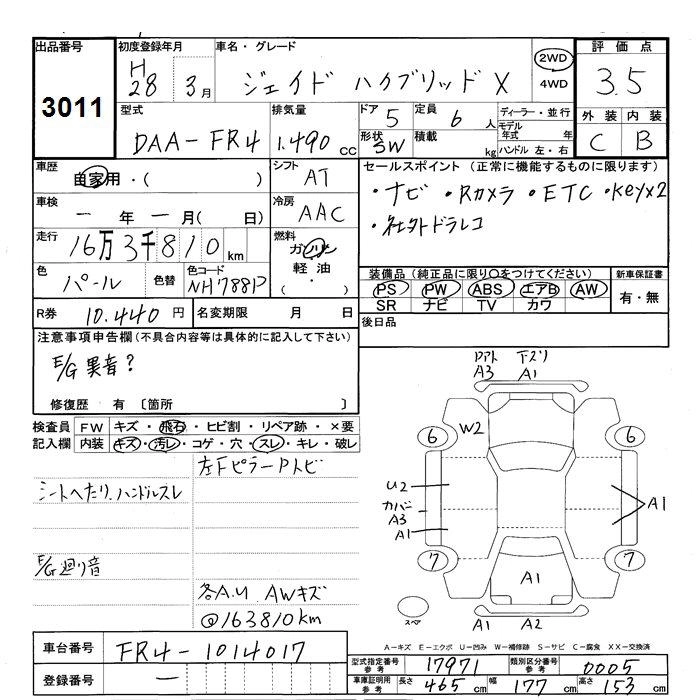 出品番号 初度登録年月 車名・グレード 2WD 評価点
3011 H28 3月 ジェイド ハイブリッド X 4WD 3.5
型式 排気量 ドア 5 定員 6人 ディーラー・並行 外装 内装
DAA-FR4 1.490cc 形状 5W 積載 kg モデル年式 年 C B
ハンドル 左・右
車歴 自家用・( ) シフト AT セールスポイント (正常に機能するものに限ります)
車検 一年一月( ) 冷房 AAC ・ナビ ・Rカメラ ・ETC ・keyx2
・社外ドラレコ
走行 16万3千810km 燃料 ガソリン
軽油
色 パール 色替 色コード NH788P ・( )
装備品(純正品に限り○をつけてください) 新車保証書
PS PW ABS エアB AW 有・無
R券 10.440円 名変期限 月 日 SR ナビ TV カワ
注意事項申告欄(不具合内容等は具体的に記入して下さい) 後日品
E/G異音?
修復歴 有〔箇所 〕
検査員 FW キズ・飛石・ヒビ割・リペア跡・×要
記入欄 内装 キズ・汚レ・コゲ・穴・スレ・キレ・破レ
左FピラーPトビ
シートヘたり.ハンドルスレ
E/G廻り音
各A.U AWキズ
@163810km
Dアト 下スリ
A3 A1
6 W2 6
U2
カバー
A3
A1
A1
7 7
A1
スペア
A1 A2
A-キズ E-エクボ U-凹み W-補修跡 S-サビ C-腐食 XX-交換済
車台番号 FR4-1014017
登録番号 一
型式指定番号 参考 17971 類別区分番号 参考 0005
車庫証明用 参考 長さ 465cm 幅 177cm 高さ 153cm